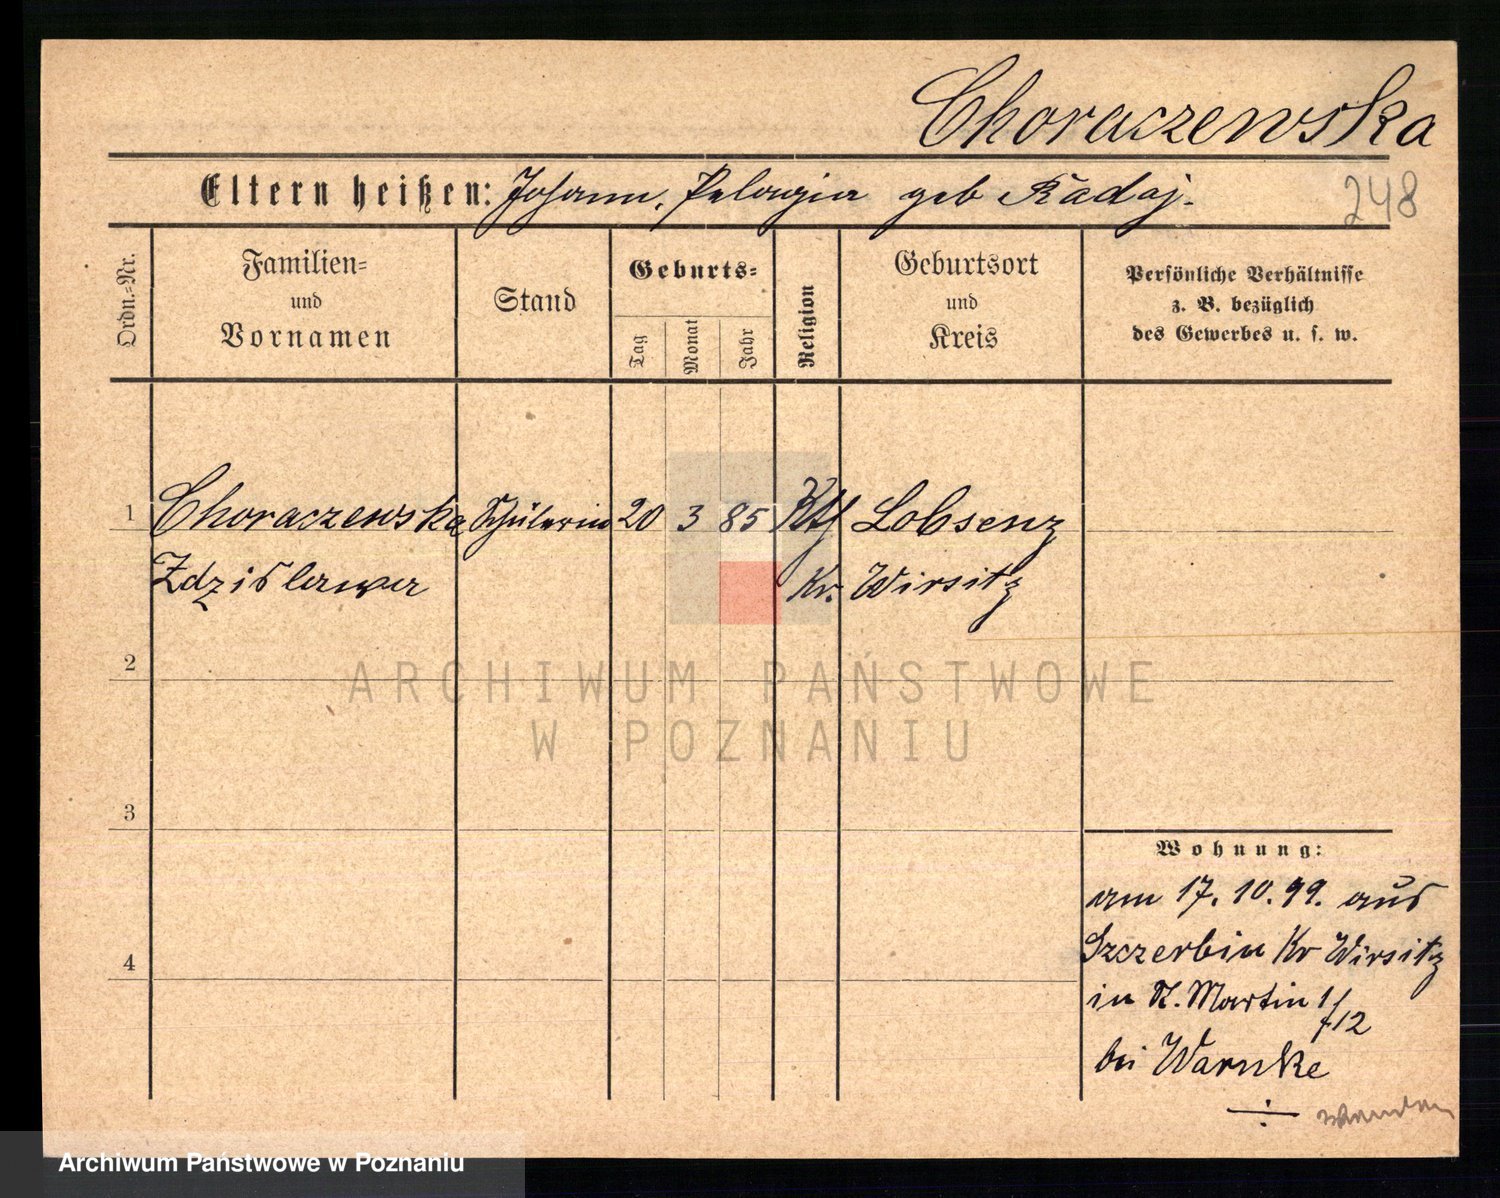 Choraczewska
Eltern heißen: Johann, Pelagia geb Radaj.
248
Ordn.-Nr.
Familien-
und
Vornamen
Stand
Geburts-
Tag
Monat
Jahr
Religion
Geburtsort
und
Kreis
Persönliche Verhältnisse
z. B. bezüglich
des Gewerbes u. s. w.
1 Choraczewska Schülerin 20 3 85 Kth Lobsenz
Zdzislawa Kr. Wirsitz
ARCHIWUM PAŃSTWOWE
W POZNANIU
2
3
4
Wohnung:
am 17. 10. 99. aus
Szczerbin Kr Wirsitz
in St. Martin 1/
12
bei Warnke
wenden
Archiwum Państwowe w Poznaniu